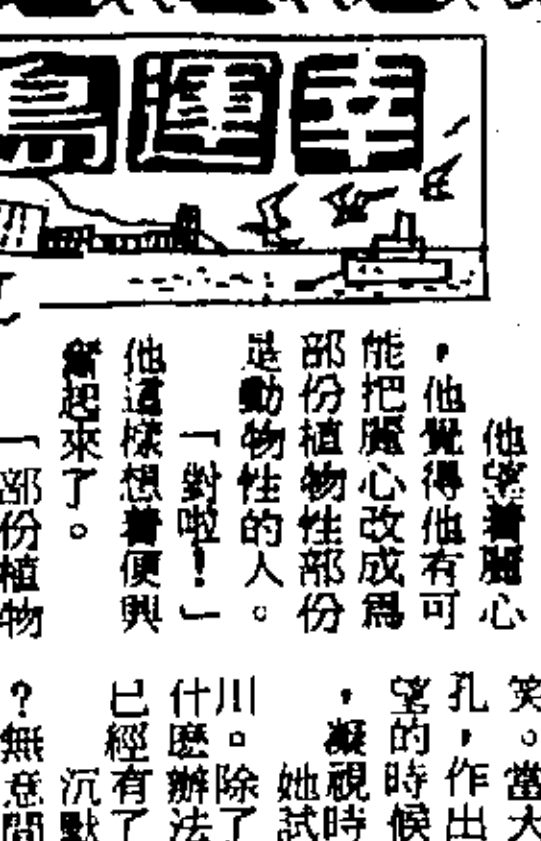 幸運鳥
他望着麗心
，他覺得他有可
能把麗心改成爲
部份植物性部份
是動物性的人。
「對啦！」
他這樣想着便興
奮起來了。
「部份植物
笑。當大
孔，作出
望的時候
，凝視時
她試
川。除了
什麼辦法
已經有了
沉默
？無意間